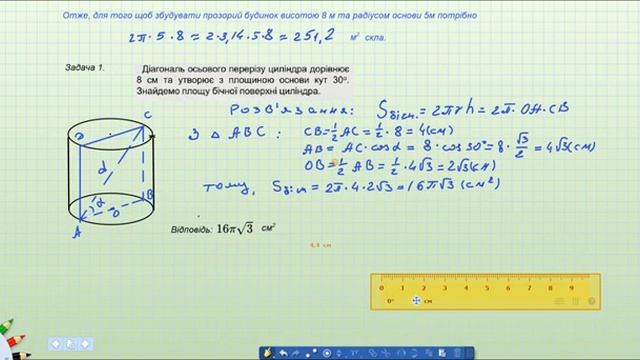 Отже, для того щоб збудувати прозорий будинок висотою 8 м та радіусом основи 5м потрібно
2π · 5 · 8 ≈ 2 · 3,14 · 5 · 8 = 251,2 м² скла.
Задача 1.
Діагональ осьового перерізу циліндра дорівнює
8 см та утворює з площиною основи кут 30°.
Знайдемо площу бічної поверхні циліндра.
Розв'язання: Sбічн. = 2πrh = 2π · OA · CB
З △ ABC : CB = 1/2 AC = 1/2 · 8 = 4 (см)
AB = AC · cos α = 8 · cos 30° = 8 · √3/2 = 4√3 (см)
OB = 1/2 AB = 1/2 · 4√3 = 2√3 (см)
тому, Sбічн = 2π · 4 · 2√3 = 16π√3 (см²)
D C
d
α O B
A
Відповідь: 16π√3 см²
4,4 см
0 1 2 3 4 5 6 7 8 9
0° см